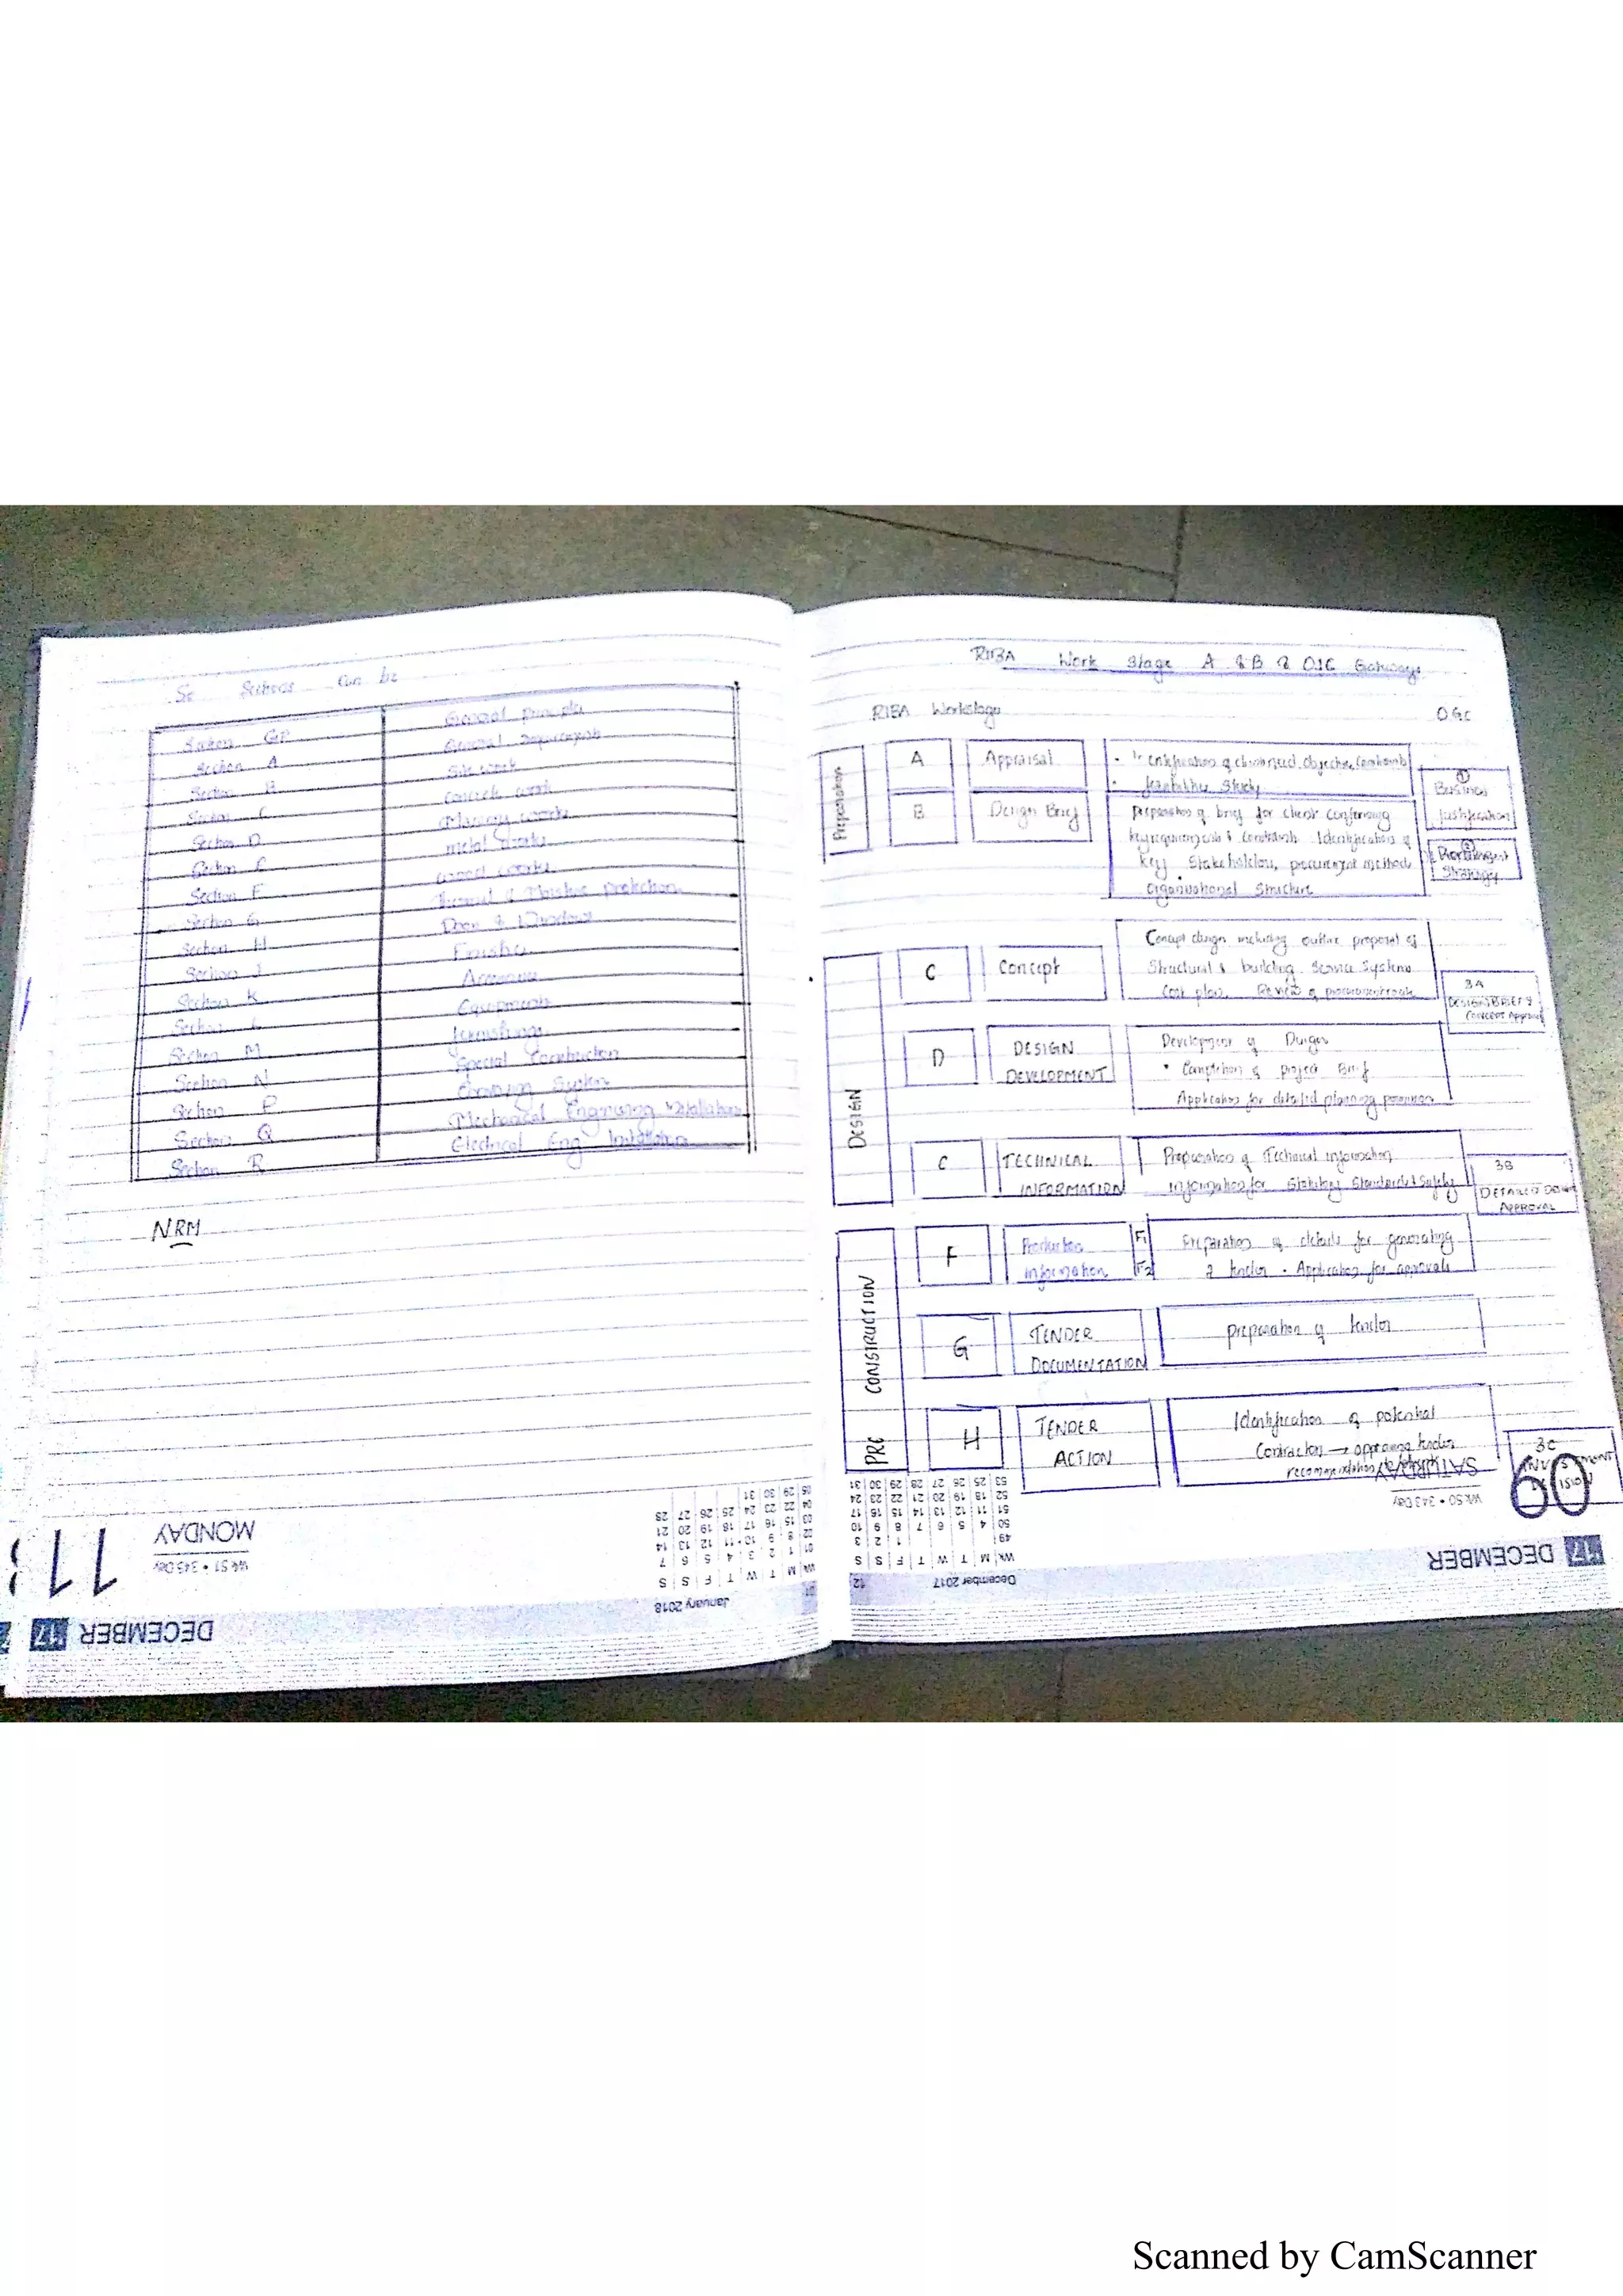 So Sections Can be
Section GP General principles
Section A General requirements
Section B Site work
Section C Concrete work
Section D Masonry works
Section E metal works
Section F wood works
Section G Thermal & Moisture protection
Section H Doors & Windows
Section J Finishes
Section K
Section L Equipments
Section M furnishings
Section N Special Construction
Section P Conveying System
Section Q Mechanical Engineering Installation
Section R Electrical Eng Installation
NRM
January 2018 01
Wk M T W T F S S
01 1 2 3 4 5 6 7
02 8 9 10 11 12 13 14
03 15 16 17 18 19 20 21
04 22 23 24 25 26 27 28
05 29 30 31
11 MONDAY
Wk 51 • 345 Day
17 DECEMBER
RIBA Work Stage A & B & OGC Gateways
RIBA Workstage OGC
Preparation
A Appraisal
• Identification of client need, Objective, Constraints
• feasibility study
B Design Brief
Preparation of brief for client confirming
key requirements & constraints. Identification of
key Stakeholders, procurement method
Organisational Structure
1
Business
justification
2
Procurement
Strategy
DESIGN
C Concept
Concept design including outline proposal of
Structural & building Service Systems
Cost plan. Review of procurement route
3A
DESIGN BRIEF &
CONCEPT Approval
D DESIGN
DEVELOPMENT
Development of Design
• Completion of project Brief
Application for detailed planning permission
TECHNICAL
INFORMATION
Preparation of Technical information
information for Statutory Standards & Safety
3B
DETAILED DESIGN
APPROVAL
PRE CONSTRUCTION
F Production
information
F1
F2
Preparation of details for generating
tender • Application for approvals
G TENDER
DOCUMENTATION
preparation of tender
H TENDER
ACTION
Identification of potential
Contractors → appraising tender
recommendation
3C
60
December 2017 12
Wk M T W T F S S
49 1 2 3
50 4 5 6 7 8 9 10
51 11 12 13 14 15 16 17
52 18 19 20 21 22 23 24
53 25 26 27 28 29 30 31
SATURDAY
Wk 50 • 343 Day
17 DECEMBER
Scanned by CamScanner